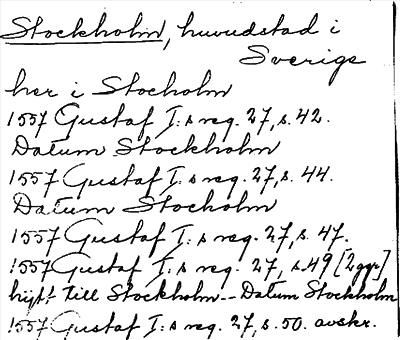 Stockholm, huvudstad i
Sverige
her i Stocholm
1557 Gustaf I:s reg. 27, s. 42.
Datum Stockholm
1557 Gustaf I:s reg. 27, s. 44.
Datum Stocholm
1557 Gustaf I:s reg. 27, s. 47.
1557 Gustaf I:s reg. 27, s. 49 [2 ggr]
hijtt till Stockholm -- Datum Stockholm
1557 Gustaf I:s reg. 27, s. 50. avskr.